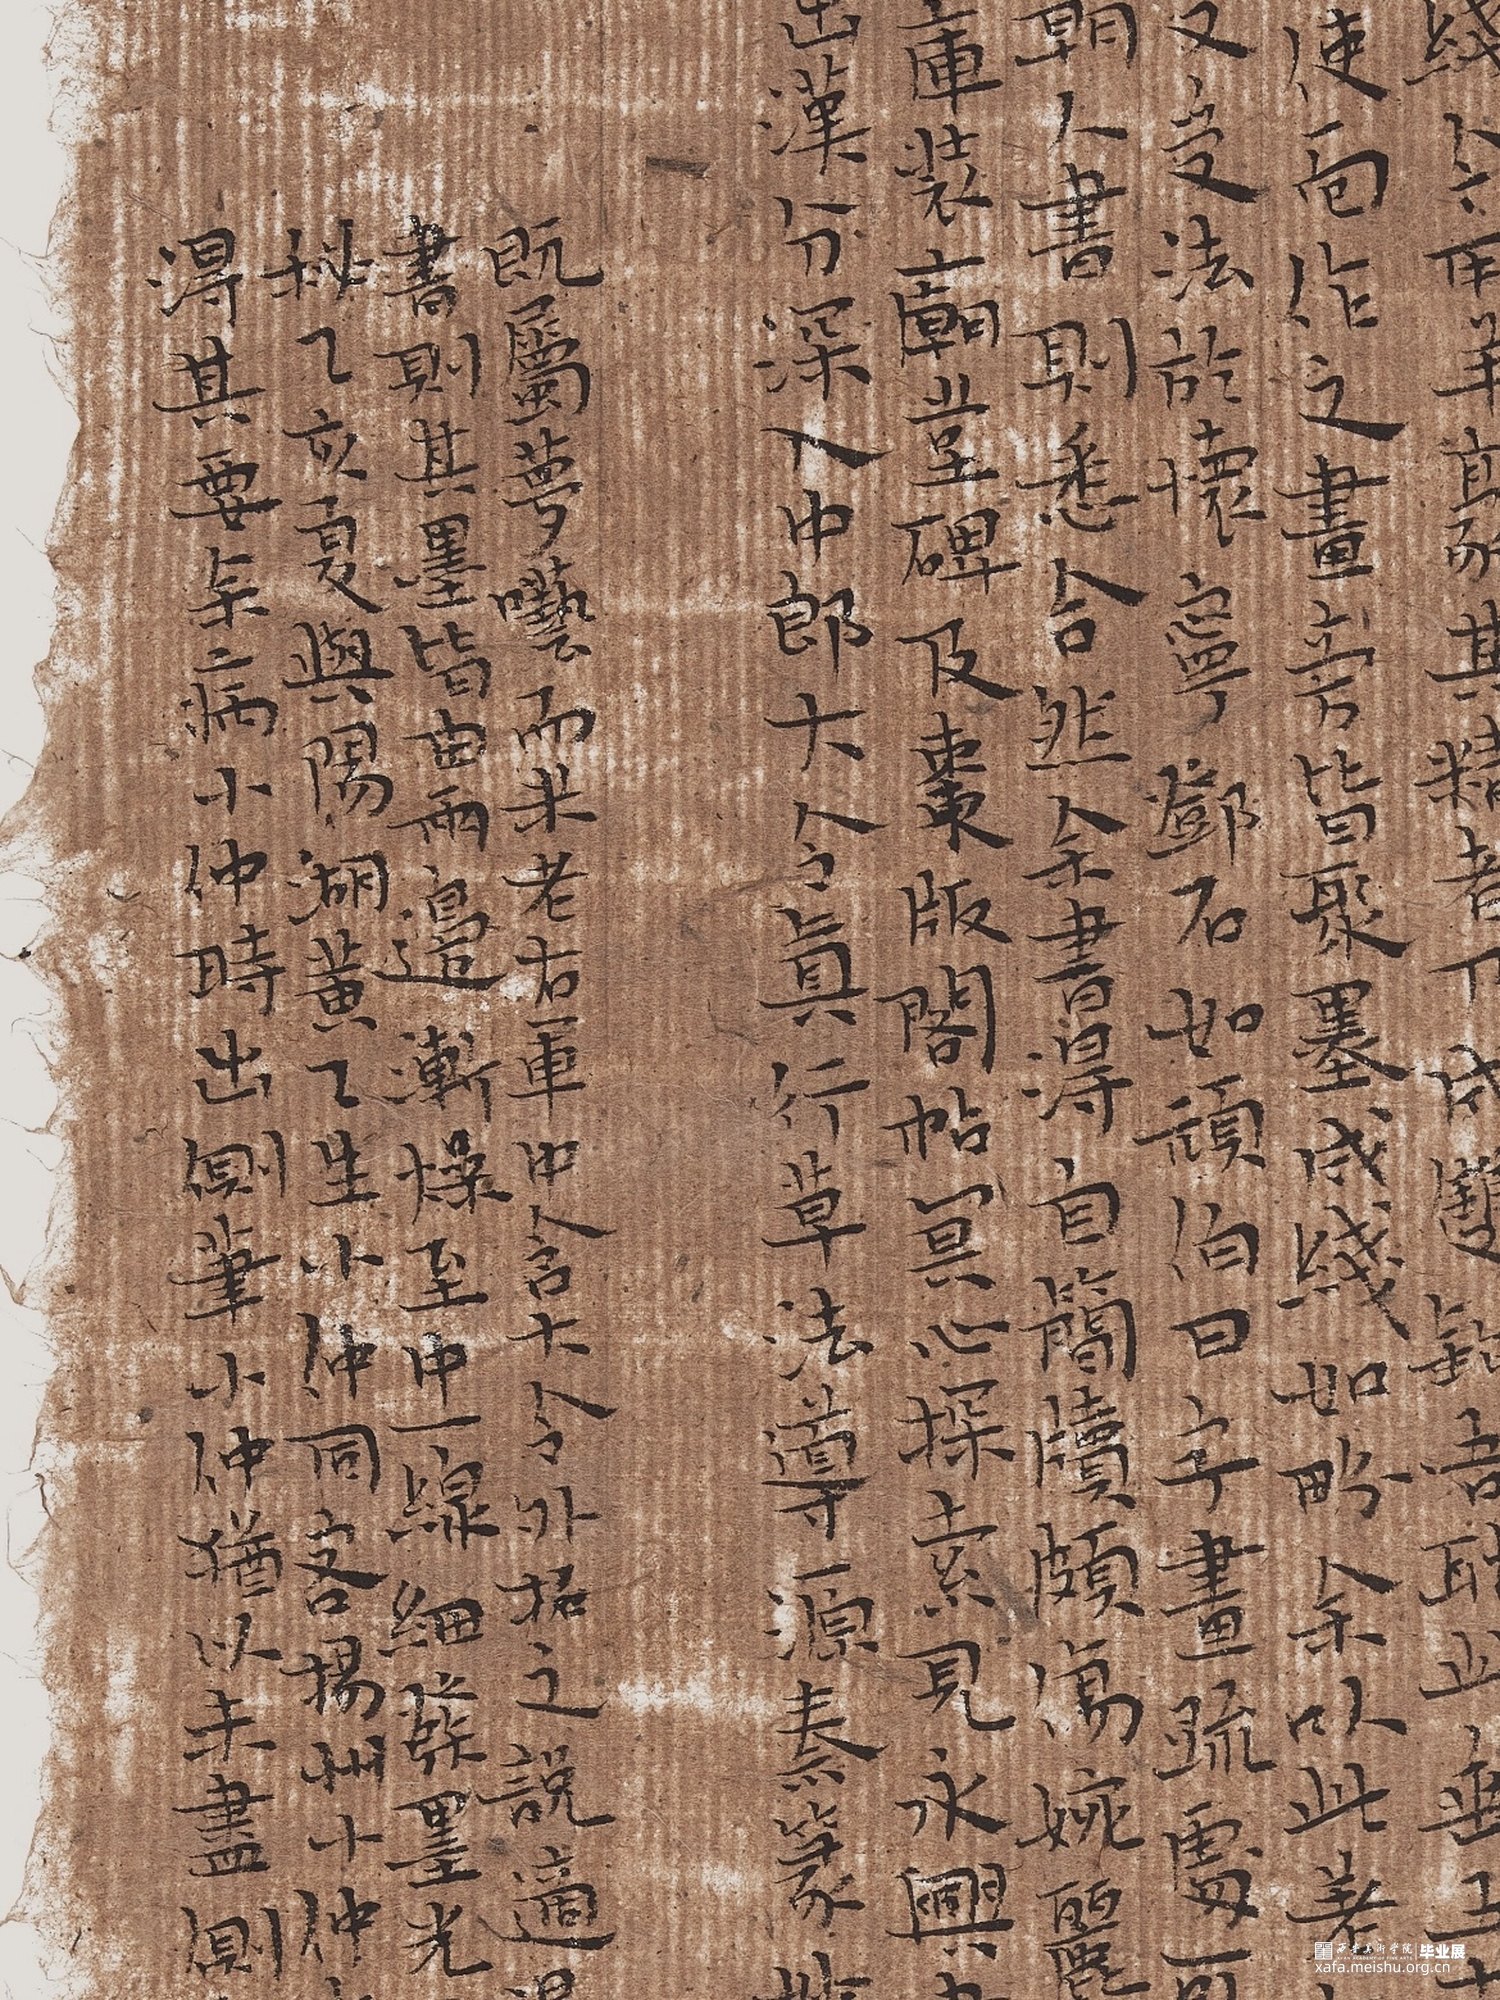 綫〻再半寫篆其精者乃成雙鈎吾耽此垂五十
使而作之畫旁皆聚墨成綫如畧余以此差
又受法於懷寧鄧石如頑伯曰字畫疏處可
朝人書則悉合然余書得自簡牘頗傷婉麗
庫裝廟堂碑及棗版閣帖冥心探索見永興
出漢分深入中郎大令真行草法導源秦篆
既屬夢囈而米老右軍中含大令外拓之說適得
書則其墨皆由兩邊漸燥至中一線細絲墨光
秘乙亥夏與陽湖黃乙生小仲同客揚州十仲
得其要矣病小仲時出側筆小仲猶以未盡側
西安美術學院 毕业展
xafa.meishu.org.cn